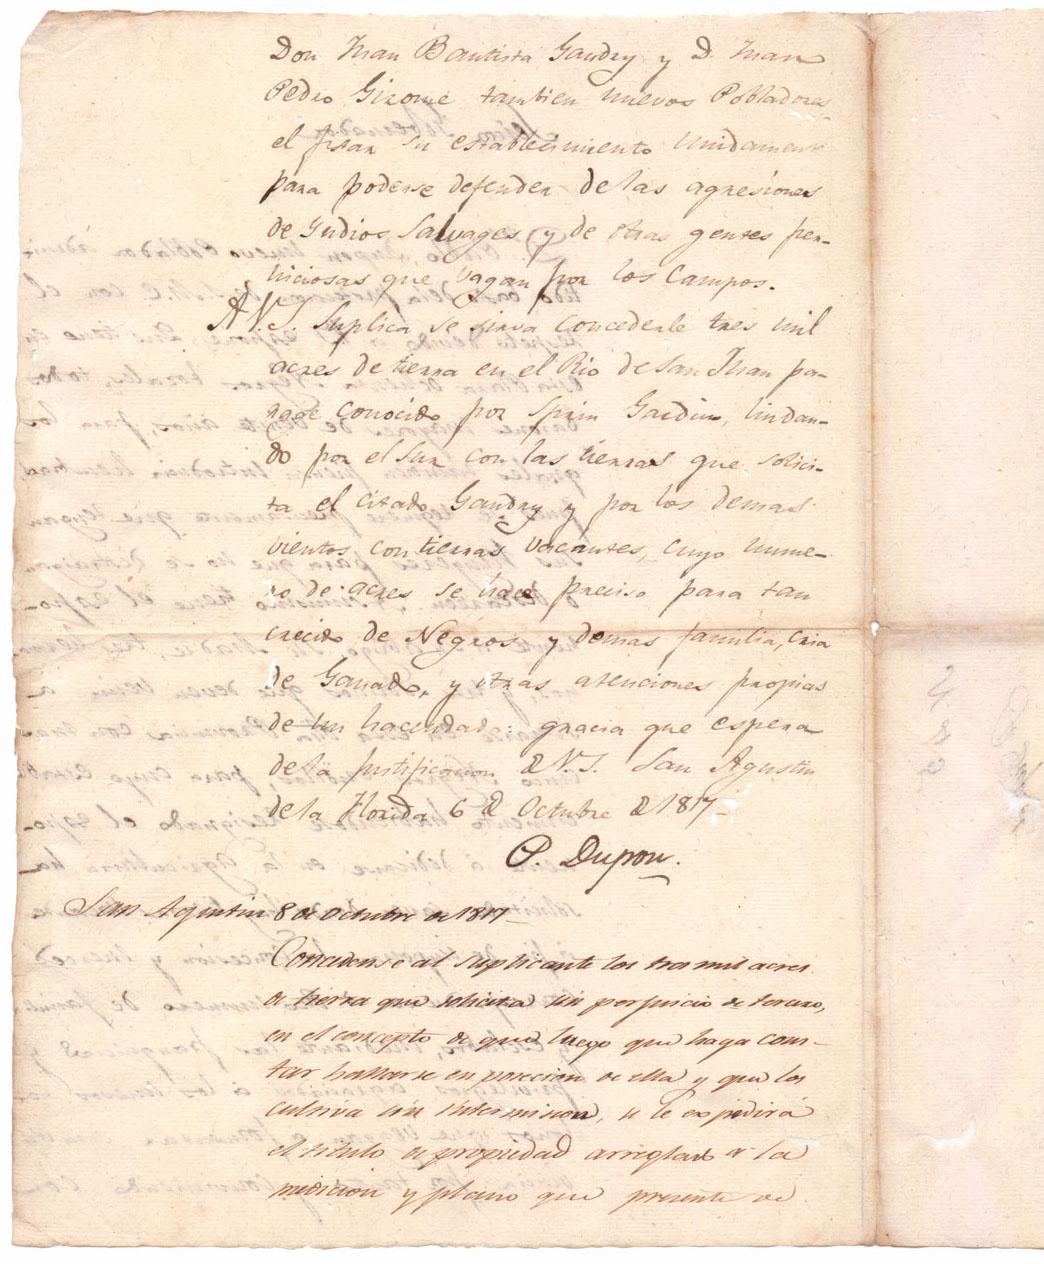 Don Juan Bautista Gaudry y D. Juan
Pedro Girome tambien nuevos Pobladores
el fixar su establecimiento Unidamente
para poderse defender de las agresiones
de Yndios Salvages, y de otras gentes per-
niciosas que vagan por los Campos.
A V.S. Suplica se sirva concederle tres mil
acres de tierra en el Rio de San Juan pa-
rage conocido por Sprin Gardin, lindan-
do por el Sur con las tierras que solici-
ta el citado Gaudry y por los demas
vientos con tierras vacantes, cuyo nume-
ro de acres se hace preciso para tan
crecido de Negros y demas familia, cria
de Ganado, y otras atenciones propias
de un hacendado: gracia que espera
de la justificacion de V.S. San Agustin
de la Florida 6 de Octubre de 1817
P. Dupon.
San Agustin 8 de Octubre de 1817
Concedense al suplicante los tres mil acres
de tierra que solicita sin perjuicio de tercero,
en el concepto de que luego que haga cons-
tar hallarse en posecion de ella y que los
cultiva sin intermision, se le expedirá
el titulo de propiedad arreglado a la
medicion y plano que presente de